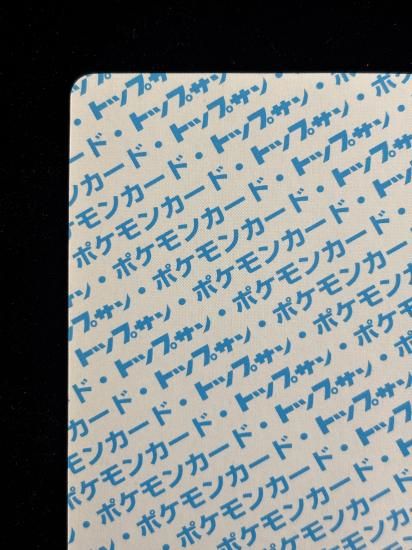 ・トップサン
ード・トップサン・
ンカード・トップサン・
ケモンカード・トップサン・ポ
ポケモンカード・トップサン・
・ポケモンカード・トップサン
ン・ポケモンカード・トップサン
トップサン・ポケモンカード・
・トップサン・ポケモンカード
ド・トップサン・ポケモンカ
カード・トップサン・ポケモン
モンカード・トップサン・ポ
ポケモンカード・トップサン
・ポケモンカード・
ン・ポケモンカード